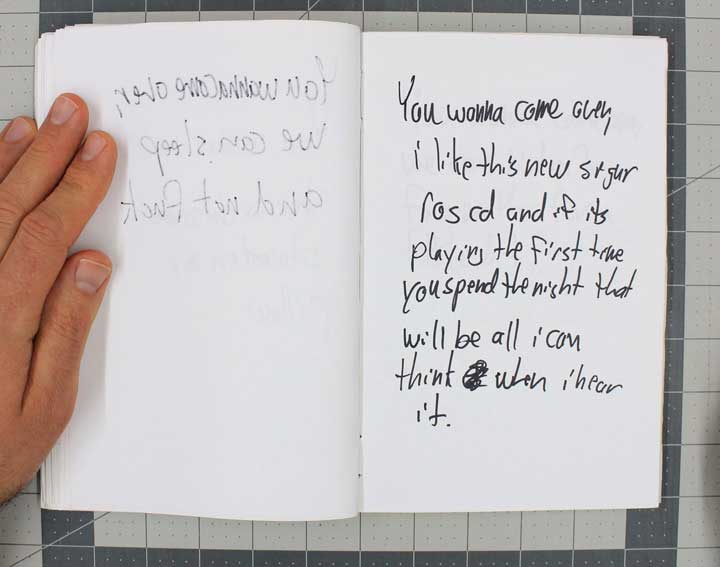 You wanna come over,
we can sleep
and not fuck
You wanna come over,
i like this new sigur
ros cd and if its
playing the first time
you spend the night that
will be all i can
think when i hear
it.